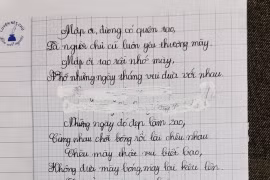 Mập ơi, đừng có quên tao,
Là người chủ cũ luôn yêu thương mày.
Mập ơi tao rất nhớ mày,
Nhớ những ngày tháng vui đùa với nhau.
Những ngày đó đẹp làm sao,
Cùng nhau chơi bóng rồi lại chêu nhau
Chêu mày thật vui biết bao,
Không đưa mày bóng, mày lại kêu lên